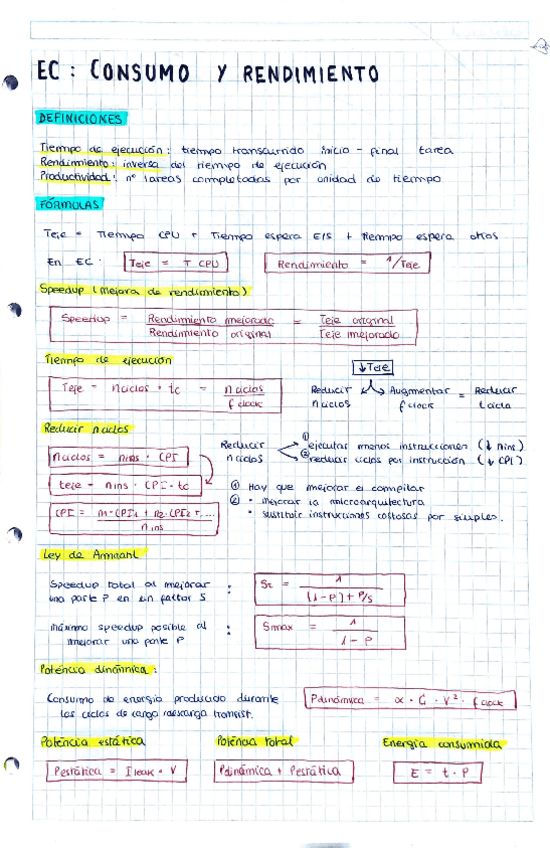 EC: CONSUMO Y RENDIMIENTO
DEFINICIONES
Tiempo de ejecución: tiempo transcurrido inicio - final tarea
Rendimiento: inversa del tiempo de ejecución
Productividad: nº tareas completadas por unidad de tiempo
FÓRMULAS
Teje = Tiempo CPU + Tiempo espera E/S + Tiempo espera otros
En EC: Teje = T CPU Rendimiento = 1/Teje
Speedup (mejora de rendimiento)
Speedup = Rendimiento mejorado / Rendimiento original = Teje original / Teje mejorado
Tiempo de ejecución
↓Teje
Teje = nciclos · tc = nciclos / fclock
Reducir nciclos Augmentar fclock = Reducir tciclo
Reducir nciclos
nciclos = nins · CPI
teje = nins · CPI · tc
CPI = n1·CPI1 + n2·CPI2 + ... / nins
Reducir nciclos
① ejecutar menos instrucciones (↓ nins)
② reducir ciclos por instrucción (↓ CPI)
① Hay que mejorar el compilar
② • mejorar la microarquitectura
• sustituir instrucciones costosas por simples.
Ley de Amdahl
Speedup total al mejorar
una parte P en un factor S :
St = 1 / (1-P) + P/S
Máximo speedup posible al
mejorar una parte P :
Smax = 1 / 1 - P
Poténcia dinámica:
Consumo de energía producido durante
los ciclos de carga/descarga transist.
Pdinámica = α · C · V² · fclock
Poténcia estática Poténcia total Energía consumida
Pestática = Ileak · V Pdinámica + Pestática E = t · P